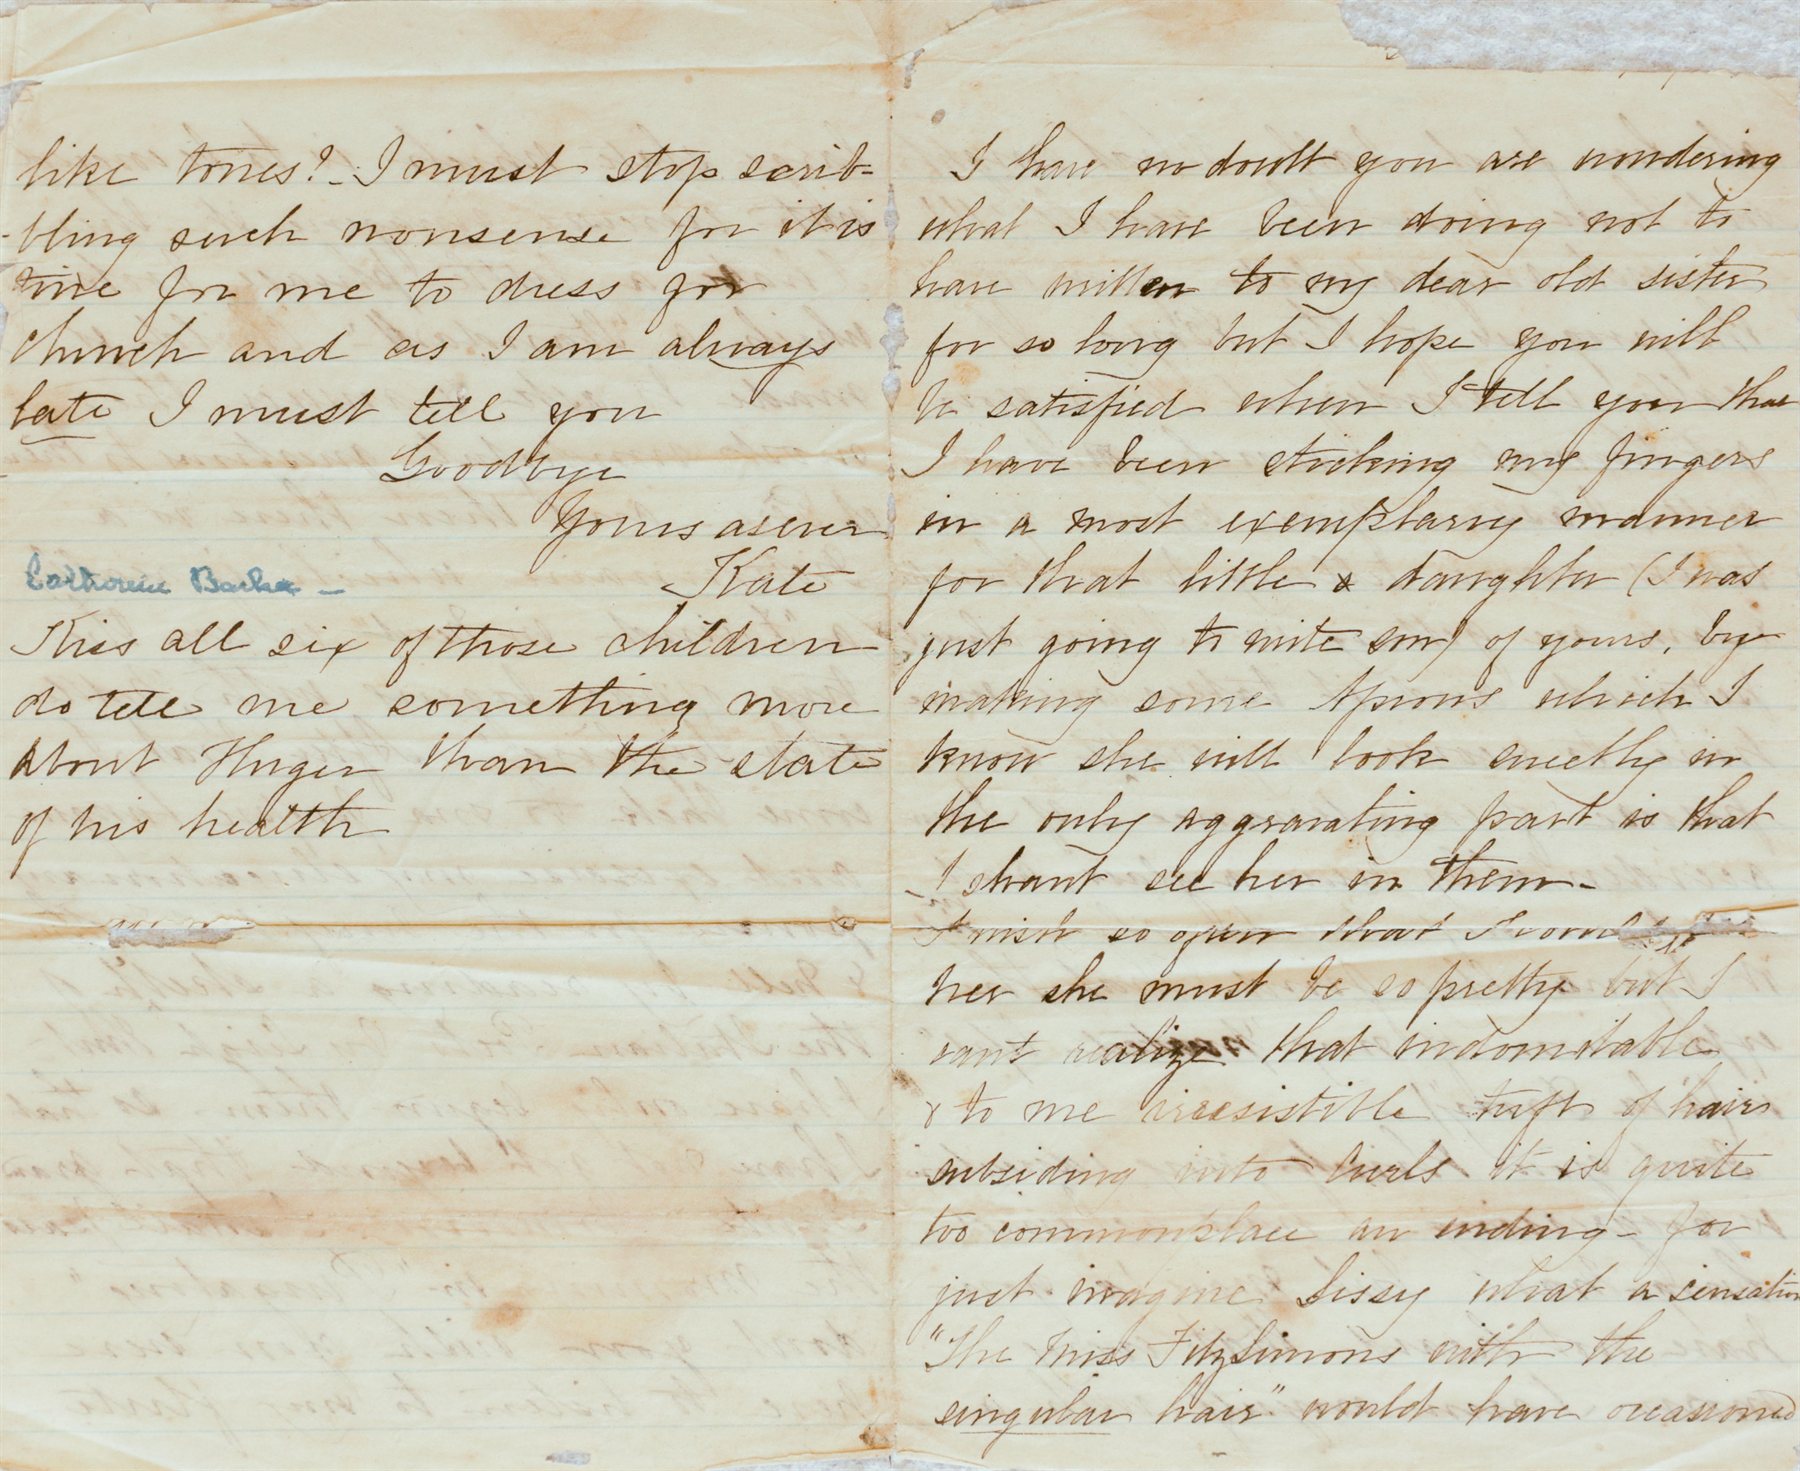 like tones? - I must stop scrib-
bling such nonsense for it is
time for me to dress for
church and as I am always
late I must tell you
Goodbye
Yours as ever
Kate
Catherine Barker -
Kiss all six of those children
do tell me something more
about Huger than the state
of his health
I have no doubt you are wondering
what I have been doing not to
have written to my dear old sister
for so long but I hope you will
be satisfied when I tell you that
I have been sticking my fingers
in a most exemplary manner
for that little daughter (I was
just going to write son) of yours, by
making some Aprons which I
know she will look sweetly in
the only aggravating part is that
I shant see her in them -
I wish so often that I could
her she must be so pretty but I
cant realize that indomitable
& to me irresistible tuft of hair
subsiding into curls it is quite
too commonplace an ending - for
just imagine Sissy what a sensation
"The Miss FitzSimons with the
singular hair" would have occasioned